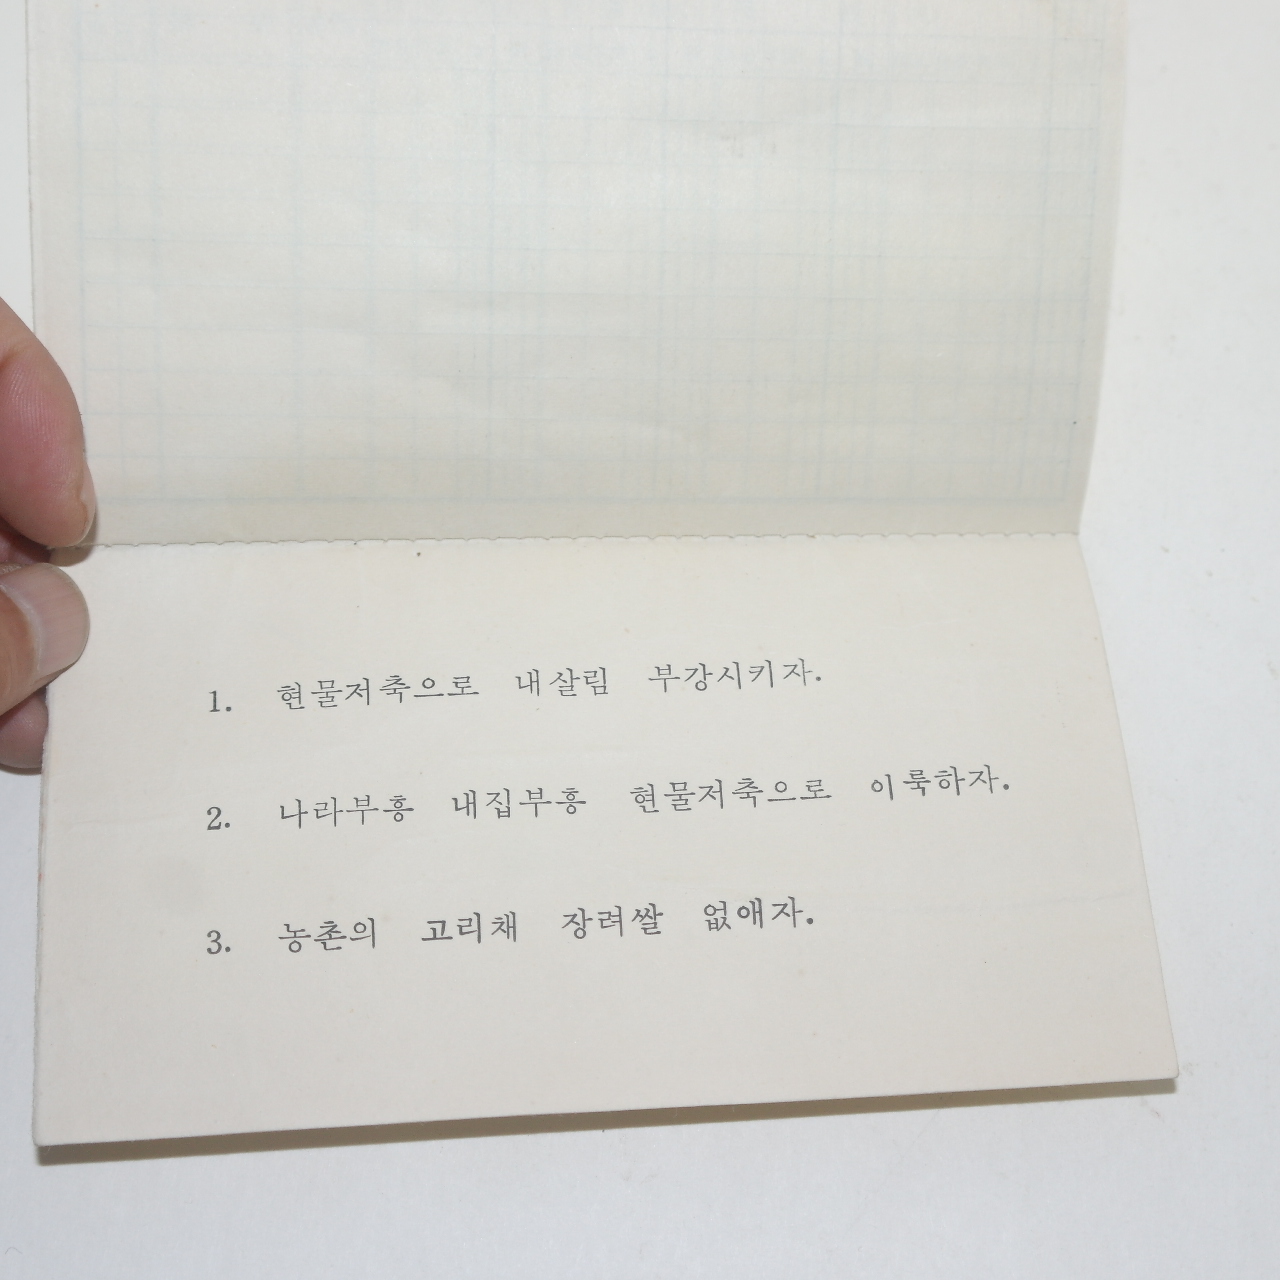 1. 현물저축으로 내살림 부강시키자.
2. 나라부흥 내집부흥 현물저축으로 이룩하자.
3. 농촌의 고리채 장려쌀 없애자.